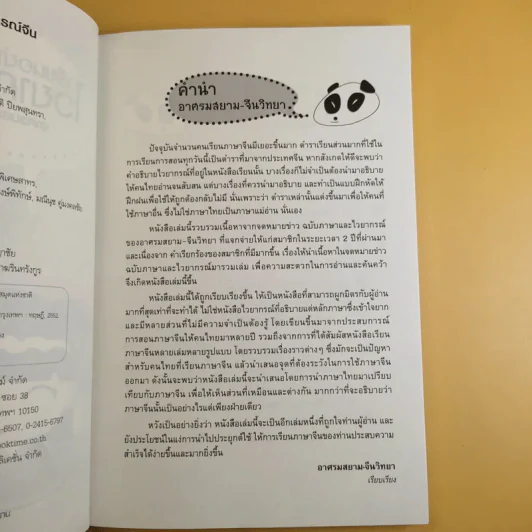 รณ์จีน
จำกัด
ดี ปิยพสุนทรา,
พิเศษสาทร,
งษ์พิทักษ์, มณีนุช คุ่มวงษ์
าชัย
สมุดแห่งชาติ
กรุงเทพฯ : ทฤษฎี, 2552.
ม์ จำกัด
ซอย 38
เทพฯ 10150
-6507, 0-2415-6797
oktime.co.th
ดิเคชั่น จำกัด
คำนำ
อาศรมสยาม-จีนวิทยา
ปัจจุบันจำนวนคนเรียนภาษาจีนมีเยอะขึ้นมาก ตำราเรียนส่วนมากที่ใช้ใน
การเรียนการสอนทุกวันนี้เป็นตำราที่มาจากประเทศจีน หากสังเกตให้ดีจะพบว่า
คำอธิบายไวยากรณ์ที่อยู่ในหนังสือเรียนนั้น บางเรื่องก็ไม่จำเป็นต้องนำมาอธิบาย
ให้คนไทยอ่านจนสับสน แต่บางเรื่องที่ควรนำมาอธิบาย และทำเป็นแบบฝึกหัดให้
ฝึกฝนเพื่อใช้ให้ถูกต้องกลับไม่มี นั่นเพราะว่า ตำราเหล่านั้นแต่งขึ้นมาเพื่อให้คนที่
ใช้ภาษาอื่น ซึ่งไม่ใช่ภาษาไทยเป็นภาษาแม่อ่าน นั่นเอง
หนังสือเล่มนี้รวบรวมเนื้อหาจากจดหมายข่าว ฉบับภาษาและไวยากรณ์
ของอาศรมสยาม-จีนวิทยา ที่แจกจ่ายให้แก่สมาชิกในระยะเวลา 2 ปีที่ผ่านมา
และเนื่องจาก คำเรียกร้องของสมาชิกที่มีมากขึ้น เรื่องให้นำเนื้อหาในจดหมายข่าว
ฉบับภาษาและไวยากรณ์มารวมเล่ม เพื่อความสะดวกในการอ่านและค้นคว้า
จึงเกิดหนังสือเล่มนี้ขึ้น
หนังสือเล่มนี้ได้ถูกเรียบเรียงขึ้น ให้เป็นหนังสือที่สามารถผูกมิตรกับผู้อ่าน
มากที่สุดเท่าที่จะทำได้ ไม่ใช่หนังสือไวยากรณ์ที่อธิบายแต่หลักภาษาซึ่งเข้าใจยาก
และมีหลายส่วนที่ไม่มีความจำเป็นต้องรู้ โดยเขียนขึ้นมาจากประสบการณ์
การสอนภาษาจีนให้คนไทยมาหลายปี รวมถึงจากการที่ได้สัมผัสหนังสือเรียน
ภาษาจีนหลายเล่มหลายรูปแบบ โดยรวบรวมเรื่องราวต่างๆ ซึ่งมักจะเป็นปัญหา
สำหรับคนไทยที่เรียนภาษาจีน แล้วนำเสนอจุดที่ต้องระวังในการใช้ภาษาจีน
ออกมา ดังนั้นจะพบว่าหนังสือเล่มนี้จะนำเสนอโดยการนำภาษาไทยมาเปรียบ
เทียบกับภาษาจีน เพื่อให้เห็นส่วนที่เหมือนและต่างกัน มากกว่าที่จะอธิบายว่า
ภาษาจีนนั้นเป็นอย่างไรแต่เพียงฝ่ายเดียว
หวังเป็นอย่างยิ่งว่า หนังสือเล่มนี้จะเป็นอีกเล่มหนึ่งที่ถูกใจท่านผู้อ่าน และ
ยังประโยชน์ในแง่การนำไปประยุกต์ใช้ ให้การเรียนภาษาจีนของท่านประสบความ
สำเร็จได้ง่ายขึ้นและมากยิ่งขึ้น
อาศรมสยาม-จีนวิทยา
เรียบเรียง